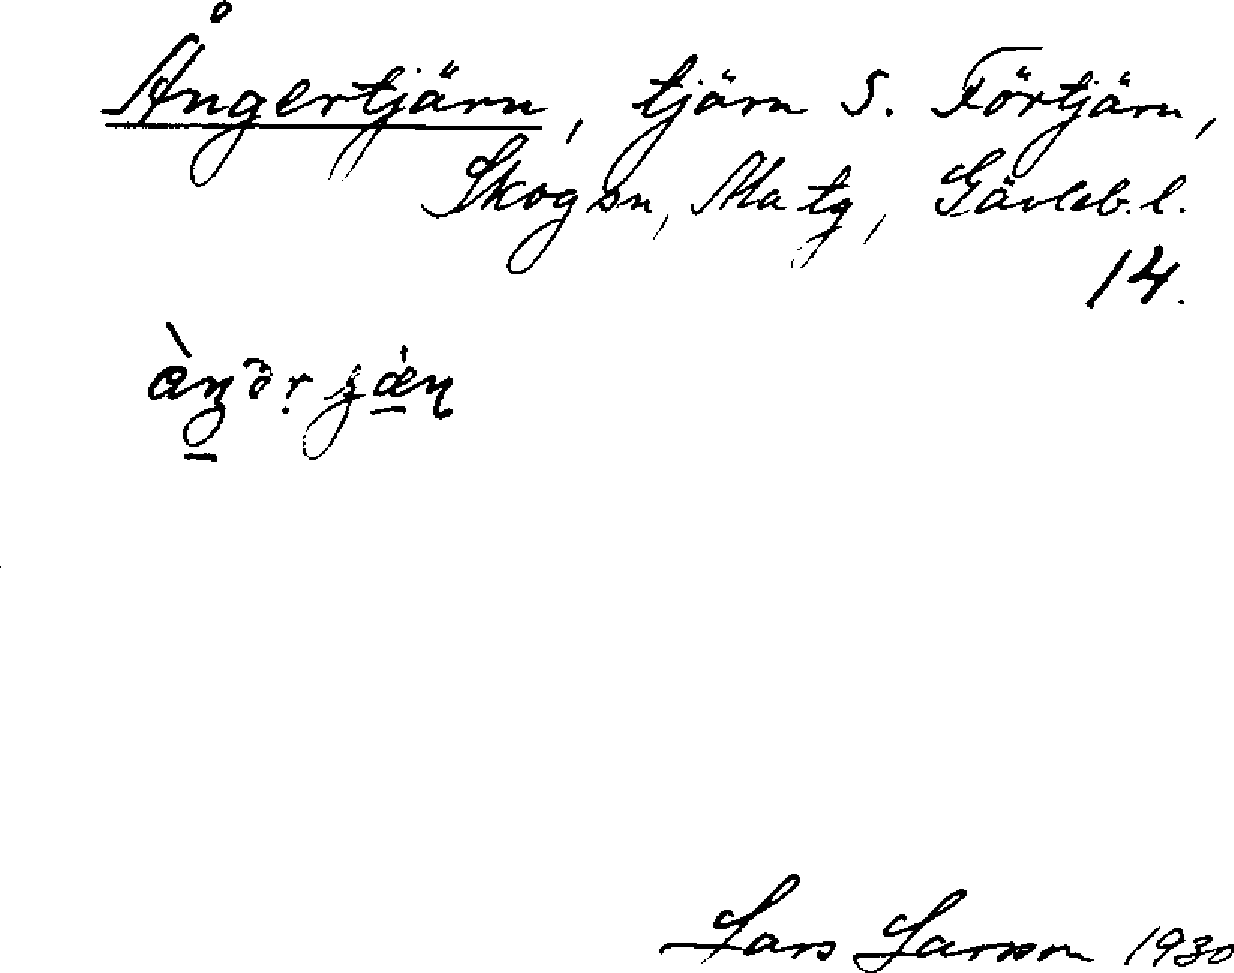 Ångertjärn, tjärn S. Förtjärn,
Skogsn, Matg, Gävleb. l.
14.
Lars Larsson 1930